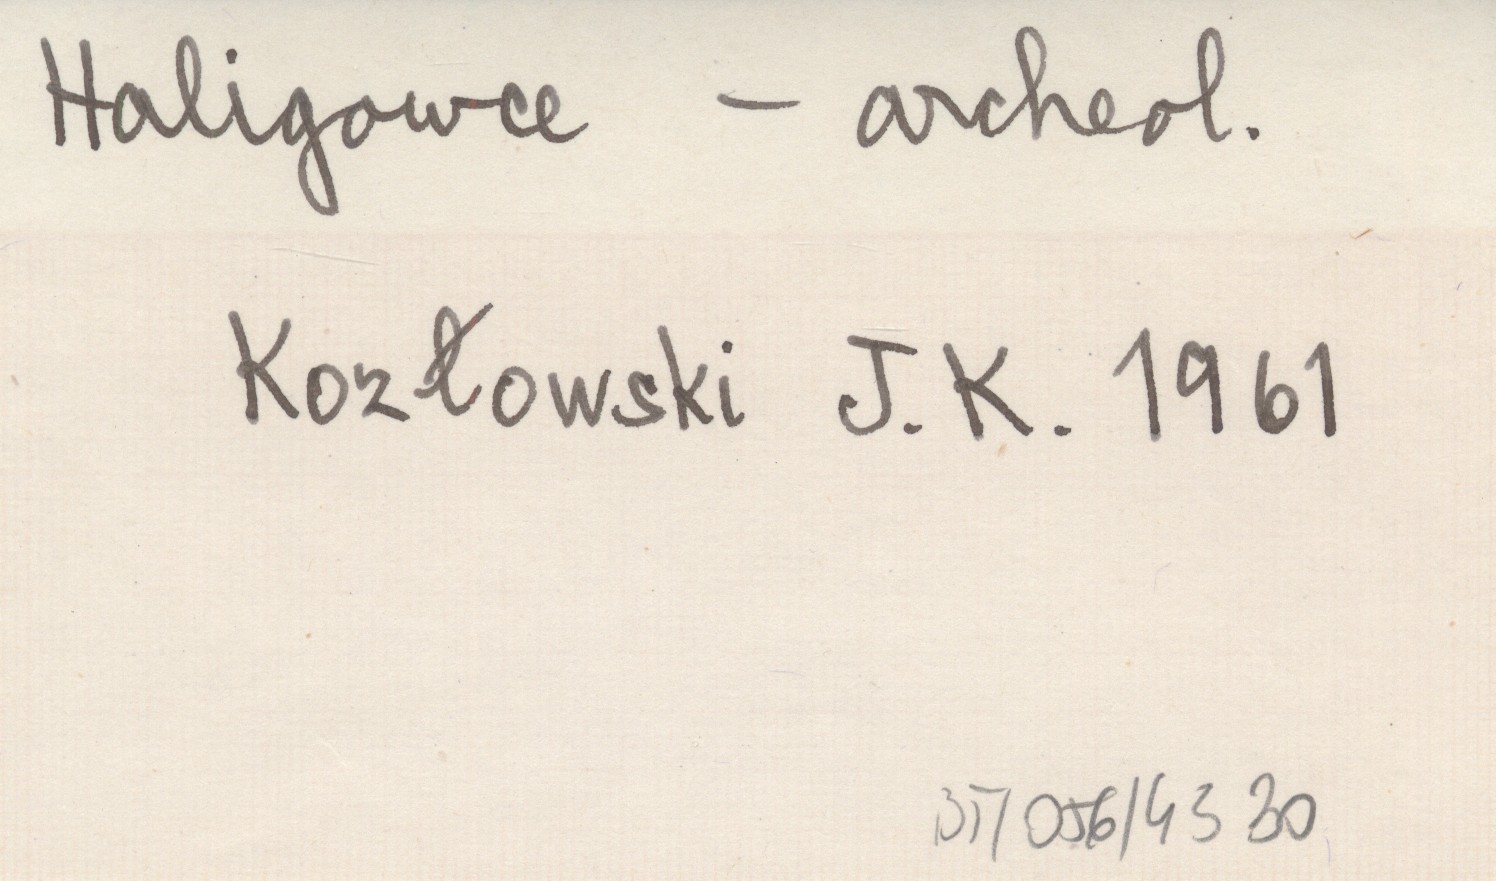 Haligowce – archeol.
Kozłowski J.K. 1961
056/4330